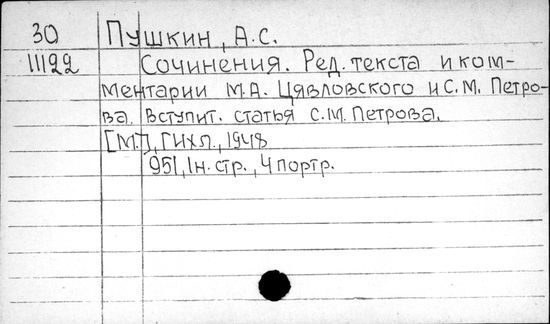 30 Пушкин, А.С.
11122 Сочинения. Ред. текста и ком-
ментарии М.А. Цявловского и С.М. Петро-
ва. Вступит. статья С.М. Петрова.
[М.], ГИХЛ, 1948
951, 1 н. стр., 4 портр.